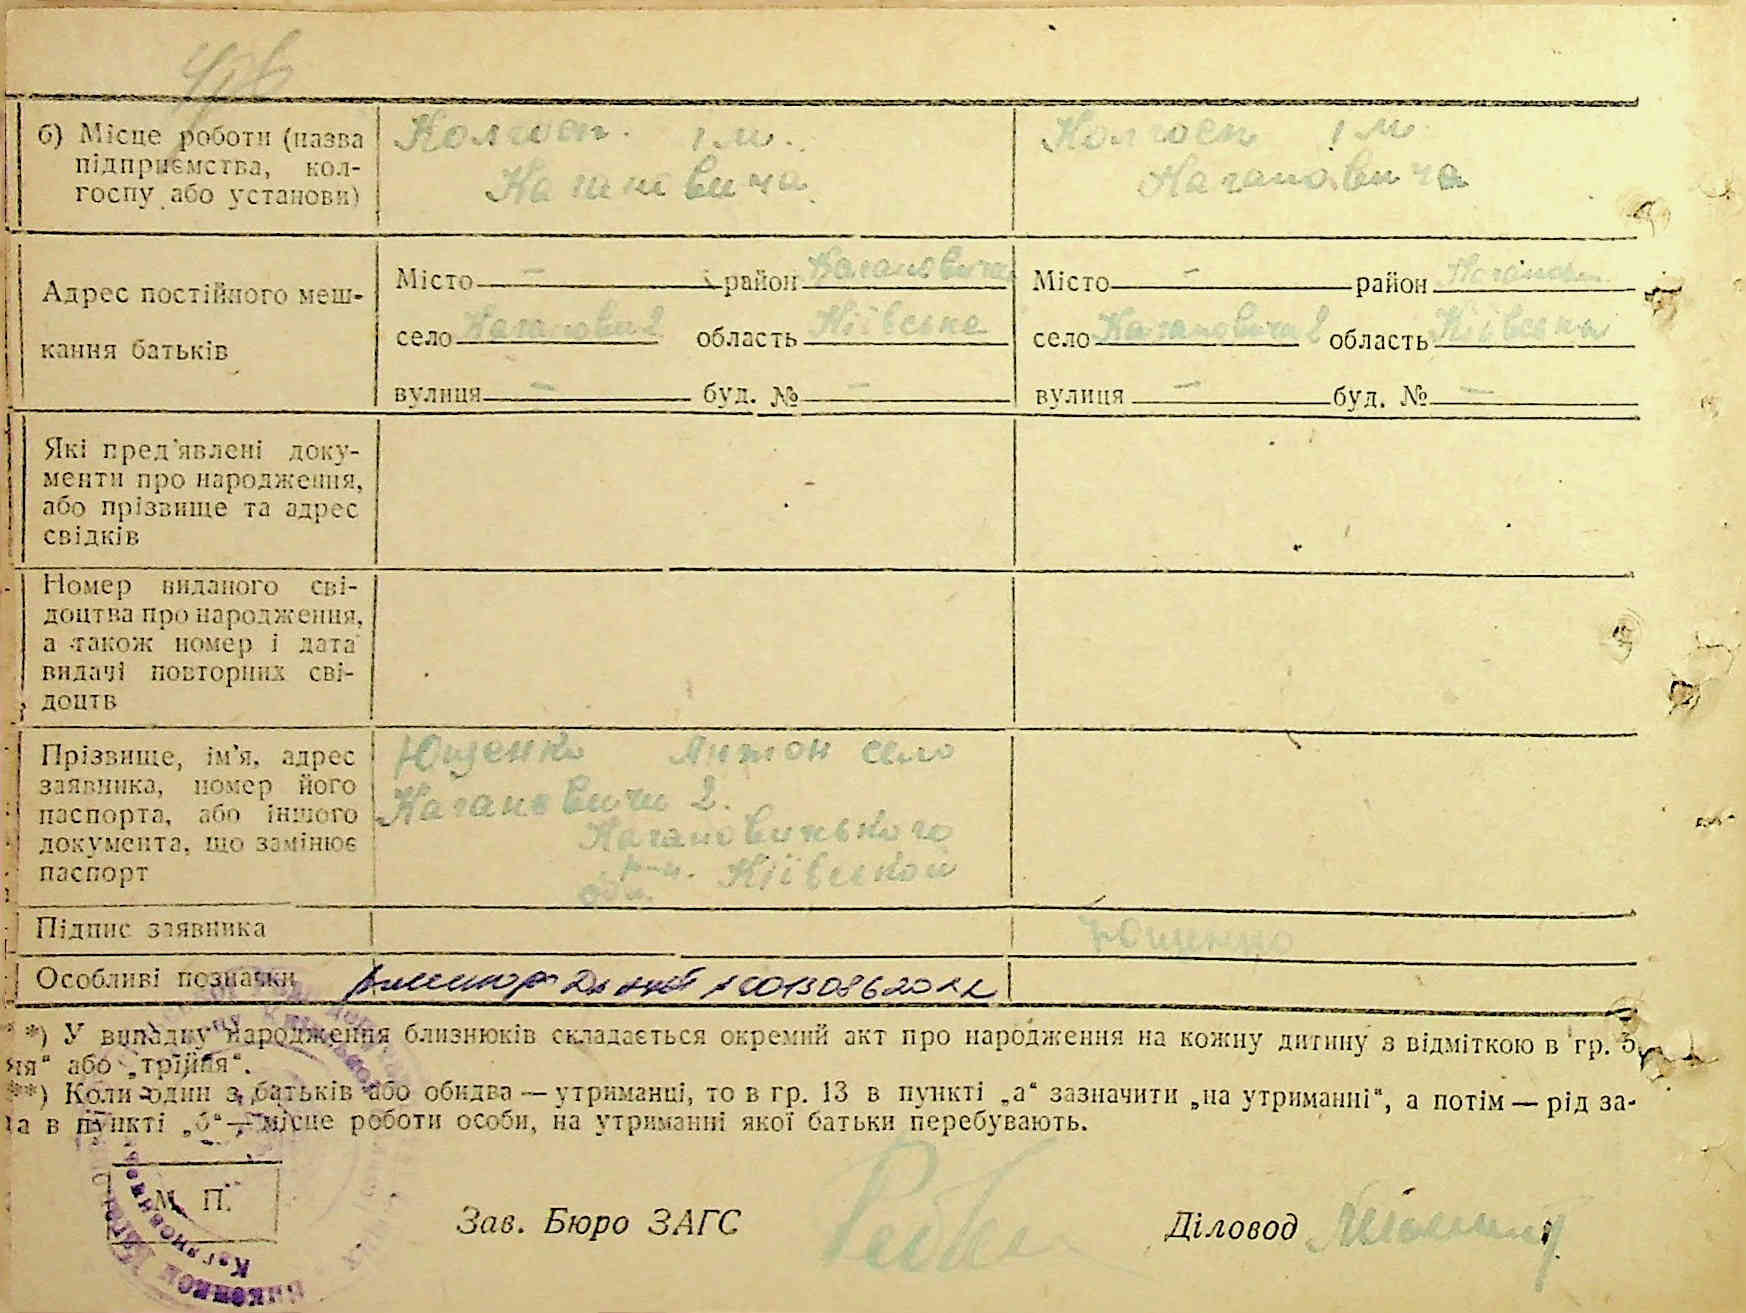 б) Місце роботи (назва
підприємства, кол-
госпу або установи)
Колгосп ім.
Кагановича
Колгосп ім.
Кагановича
Адрес постійного меш-
кання батьків
Місто — район Кагановичи
село Каганович 2 область Київська
вулиця — буд. № —
Місто — район Каганович
село Кагановичи 2 область Київська
вулиця — буд. № —
Які пред'явлені доку-
менти про народження,
або прізвище та адрес
свідків
Номер виданого сві-
доцтва про народження,
а також номер і дата
видачі повторних сві-
доцтв
Прізвище, ім'я, адрес
заявника, номер його
паспорта, або іншого
документа, що замінює
паспорт
Ющенко Антон село
Кагановичи 2.
Кагановицького
р-н. Київської
обл.
Підпис заявника
Ющенко
Особливі позначки
*) У випадку народження близнюків складається окремий акт про народження на кожну дитину з відміткою в гр. 5
ня“ або „трійня“.
**) Коли один з батьків або обидва — утриманці, то в гр. 13 в пункті „а“ зазначити „на утриманні“, а потім — рід за-
а в пункті „б“ — місце роботи особи, на утриманні якої батьки перебувають.
М. П.
Зав. Бюро ЗАГС
Діловод